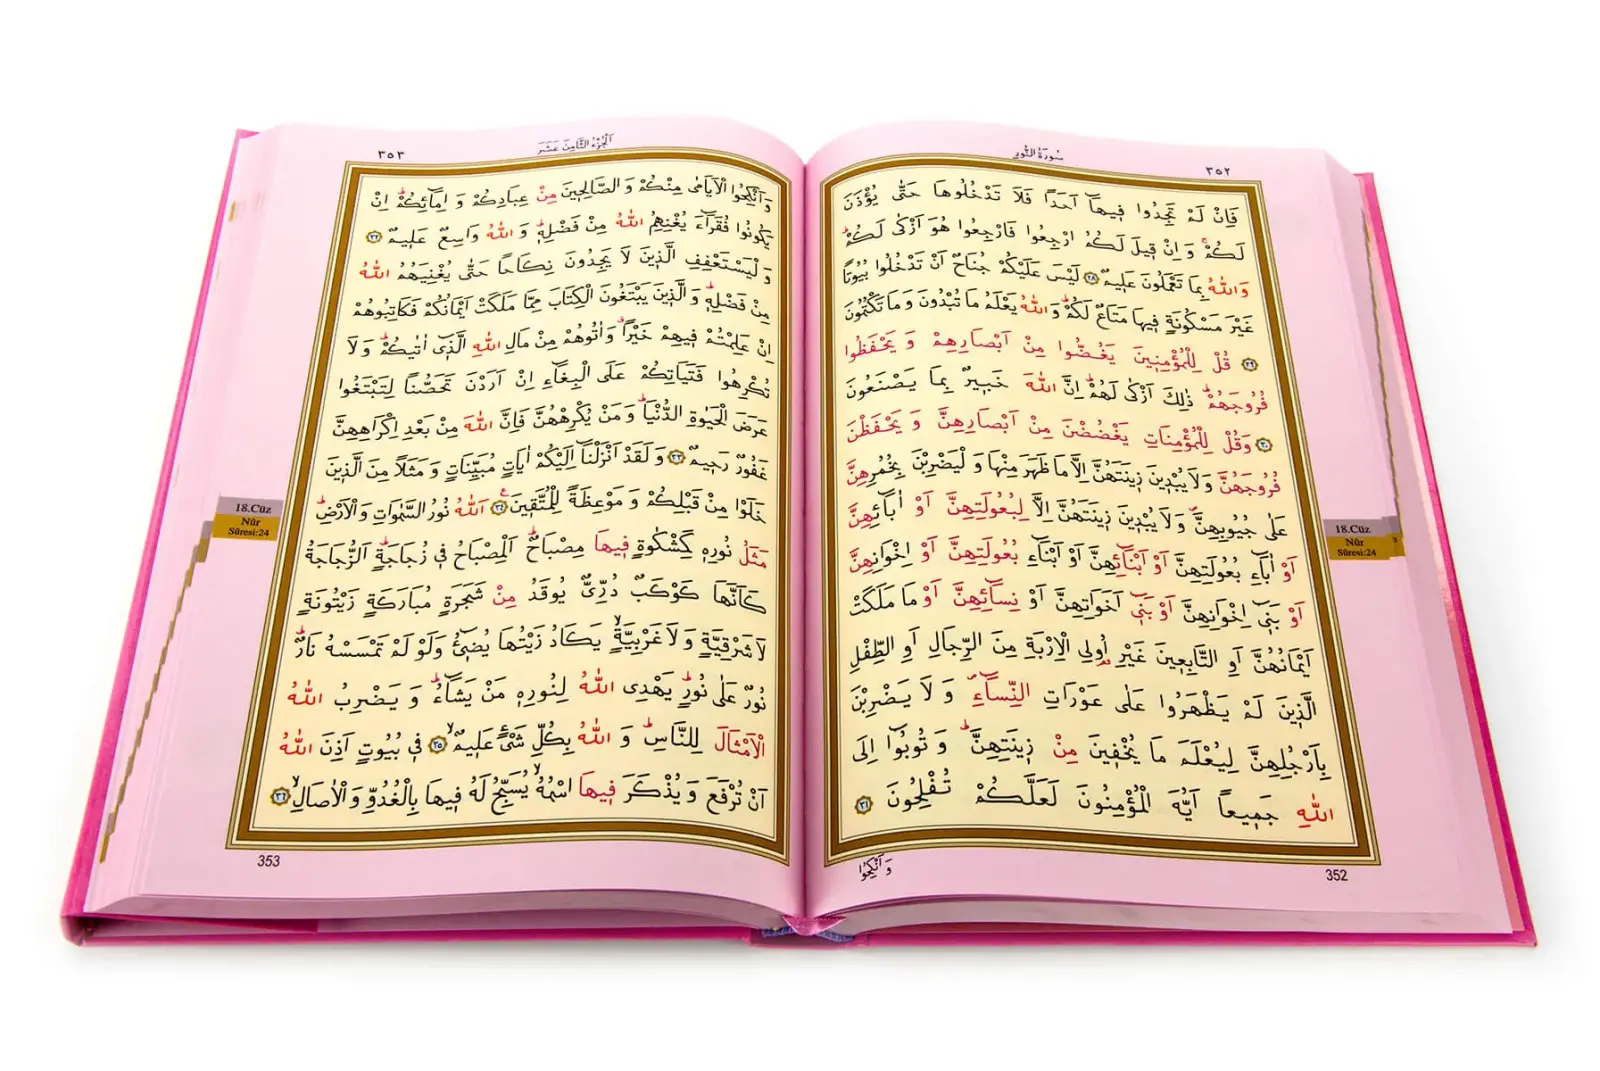 سُورَةُ النُّورِ
٣٥٢
فَاِنْ لَمْ تَجِدُوا فٖيهَٓا اَحَدًا فَلَا تَدْخُلُوهَا حَتّٰى يُؤْذَنَ
لَكُمْۚ وَاِنْ قٖيلَ لَكُمُ ارْجِعُوا فَارْجِعُوا هُوَ اَزْكٰى لَكُمْؕ
وَاللّٰهُ بِمَا تَعْمَلُونَ عَلٖيمٌ ﴿٢٨﴾ لَيْسَ عَلَيْكُمْ جُنَاحٌ اَنْ تَدْخُلُوا بُيُوتًا
غَيْرَ مَسْكُونَةٍ فٖيهَا مَتَاعٌ لَكُمْؕ وَاللّٰهُ يَعْلَمُ مَا تُبْدُونَ وَمَا تَكْتُمُونَ
﴿٢٩﴾ قُلْ لِلْمُؤْمِنٖينَ يَغُضُّوا مِنْ اَبْصَارِهِمْ وَيَحْفَظُوا
فُرُوجَهُمْؕ ذٰلِكَ اَزْكٰى لَهُمْؕ اِنَّ اللّٰهَ خَبٖيرٌ بِمَا يَصْنَعُونَ
﴿٣٠﴾ وَقُلْ لِلْمُؤْمِنَاتِ يَغْضُضْنَ مِنْ اَبْصَارِهِنَّ وَيَحْفَظْنَ
فُرُوجَهُنَّ وَلَا يُبْدٖينَ زٖينَتَهُنَّ اِلَّا مَا ظَهَرَ مِنْهَا وَلْيَضْرِبْنَ بِخُمُرِهِنَّ
عَلٰى جُيُوبِهِنَّۖ وَلَا يُبْدٖينَ زٖينَتَهُنَّ اِلَّا لِبُعُولَتِهِنَّ اَوْ اٰبَٓائِهِنَّ
اَوْ اٰبَٓاءِ بُعُولَتِهِنَّ اَوْ اَبْنَٓائِهِنَّ اَوْ اَبْنَٓاءِ بُعُولَتِهِنَّ اَوْ اِخْوَانِهِنَّ
اَوْ بَنٖٓى اِخْوَانِهِنَّ اَوْ بَنٖٓى اَخَوَاتِهِنَّ اَوْ نِسَٓائِهِنَّ اَوْ مَا مَلَكَتْ
اَيْمَانُهُنَّ اَوِ التَّابِعٖينَ غَيْرِ اُولِى الْاِرْبَةِ مِنَ الرِّجَالِ اَوِ الطِّفْلِ
الَّذٖينَ لَمْ يَظْهَرُوا عَلٰى عَوْرَاتِ النِّسَٓاءِۖ وَلَا يَضْرِبْنَ
بِاَرْجُلِهِنَّ لِيُعْلَمَ مَا يُخْفٖينَ مِنْ زٖينَتِهِنَّؕ وَتُوبُٓوا اِلَى
اللّٰهِ جَمٖيعًا اَيُّهَ الْمُؤْمِنُونَ لَعَلَّكُمْ تُفْلِحُونَ ﴿٣١﴾
وَاَنْكِحُوا
352
18.Cüz
Nûr
Sûresi:24
اَلْجُزْءُ الثَّامِنَ عَشَرَ
٣٥٣
وَاَنْكِحُوا الْاَيَامٰى مِنْكُمْ وَالصَّالِحٖينَ مِنْ عِبَادِكُمْ وَاِمَٓائِكُمْؕ اِنْ
يَكُونُوا فُقَرَٓاءَ يُغْنِهِمُ اللّٰهُ مِنْ فَضْلِهٖؕ وَاللّٰهُ وَاسِعٌ عَلٖيمٌ ﴿٣٢﴾
وَلْيَسْتَعْفِفِ الَّذٖينَ لَا يَجِدُونَ نِكَاحًا حَتّٰى يُغْنِيَهُمُ اللّٰهُ
مِنْ فَضْلِهٖؕ وَالَّذٖينَ يَبْتَغُونَ الْكِتَابَ مِمَّا مَلَكَتْ اَيْمَانُكُمْ فَكَاتِبُوهُمْ
اِنْ عَلِمْتُمْ فٖيهِمْ خَيْرًاۗ وَاٰتُوهُمْ مِنْ مَالِ اللّٰهِ الَّذٖٓى اٰتٰيكُمْؕ وَلَا
تُكْرِهُوا فَتَيَاتِكُمْ عَلَى الْبِغَٓاءِ اِنْ اَرَدْنَ تَحَصُّنًا لِتَبْتَغُوا
عَرَضَ الْحَيٰوةِ الدُّنْيَاؕ وَمَنْ يُكْرِهْهُنَّ فَاِنَّ اللّٰهَ مِنْ بَعْدِ اِكْرَاهِهِنَّ
غَفُورٌ رَحٖيمٌ ﴿٣٣﴾ وَلَقَدْ اَنْزَلْنَٓا اِلَيْكُمْ اٰيَاتٍ مُبَيِّنَاتٍ وَمَثَلًا مِنَ الَّذٖينَ
خَلَوْا مِنْ قَبْلِكُمْ وَمَوْعِظَةً لِلْمُتَّقٖينَ ﴿٣٤﴾ اَللّٰهُ نُورُ السَّمٰوَاتِ وَالْاَرْضِؕ
مَثَلُ نُورِهٖ كَمِشْكٰوةٍ فٖيهَا مِصْبَاحٌؕ اَلْمِصْبَاحُ فٖى زُجَاجَةٍؕ اَلزُّجَاجَةُ
كَاَنَّهَا كَوْكَبٌ دُرِّىٌّ يُوقَدُ مِنْ شَجَرَةٍ مُبَارَكَةٍ زَيْتُونَةٍ
لَا شَرْقِيَّةٍ وَلَا غَرْبِيَّةٍۙ يَكَادُ زَيْتُهَا يُضٖٓىءُ وَلَوْ لَمْ تَمْسَسْهُ نَارٌؕ
نُورٌ عَلٰى نُورٍؕ يَهْدِى اللّٰهُ لِنُورِهٖ مَنْ يَشَٓاءُؕ وَيَضْرِبُ اللّٰهُ
الْاَمْثَالَ لِلنَّاسِؕ وَاللّٰهُ بِكُلِّ شَىْءٍ عَلٖيمٌۙ ﴿٣٥﴾ فٖى بُيُوتٍ اَذِنَ اللّٰهُ
اَنْ تُرْفَعَ وَيُذْكَرَ فٖيهَا اسْمُهُۙ يُسَبِّحُ لَهُ فٖيهَا بِالْغُدُوِّ وَالْاٰصَالِۙ ﴿٣٦﴾
353
18.Cüz
Nûr
Sûresi:24